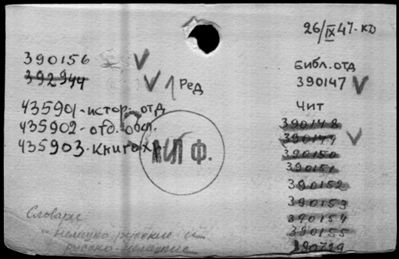 26/IX 47. КО
390156
392944
1 Ред
435901-истор. отд
435902-отд. обсл.
435903-книгохр
Библ. отд
390147
Чит
390148
390149
390150
390151
390152
390153
390154
390155
390729
Словари
немецко-русские и
русско-немецкие